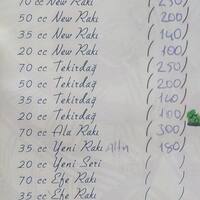 70 cc New Rakı ( 250 )
50 cc New Rakı ( 200 )
35 cc New Rakı ( 140 )
20 cc New Rakı ( 100 )
70 cc Tekirdağ ( 250 )
50 cc Tekirdağ ( 200 )
35 cc Tekirdağ ( 140 )
20 cc Tekirdağ ( 100 )
70 cc Ala Rakı ( 300 )
35 cc Yeni Rakı Altın ( 180 )
20 cc Yeni Seri ( )
70 cc Efe Rakı ( )
35 cc Efe Rakı ( )